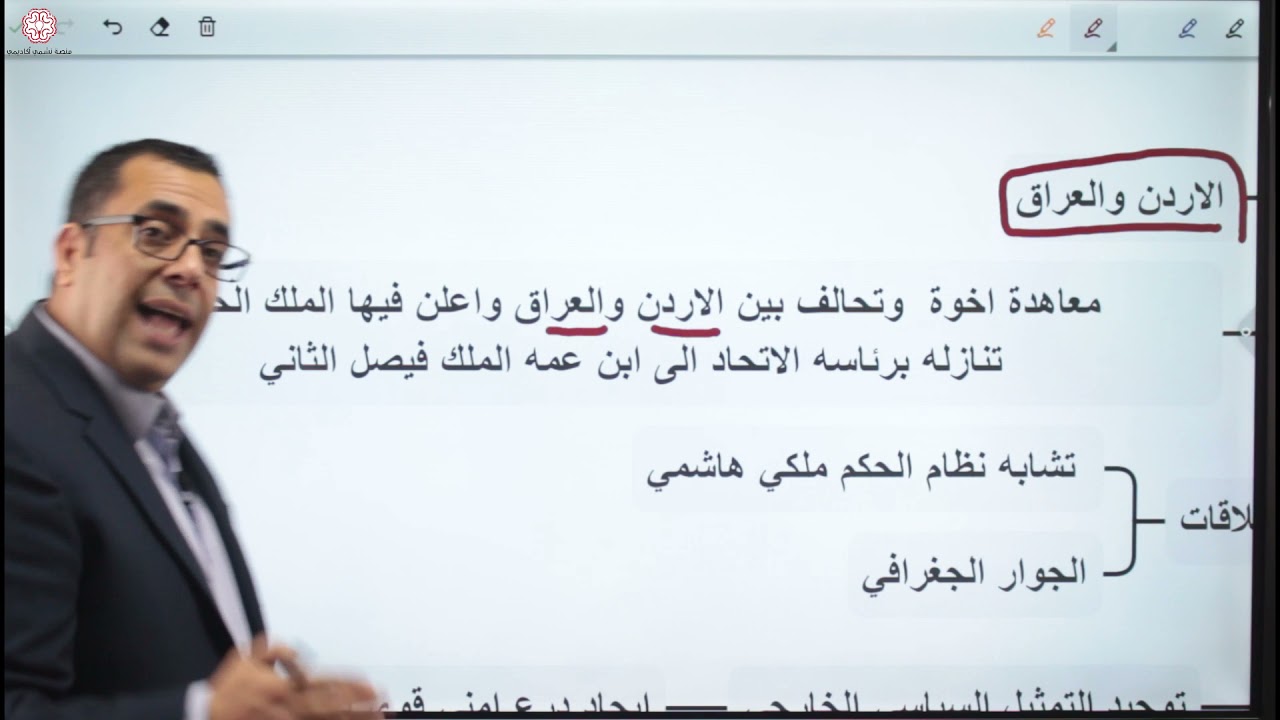 منصة نشمي أكاديمي
الاردن والعراق
معاهدة اخوة وتحالف بين الاردن والعراق واعلن فيها الملك
تنازله برئاسه الاتحاد الى ابن عمه الملك فيصل الثاني
تشابه نظام الحكم ملكي هاشمي
لاقات
الجوار الجغرافي
توحيد التمثيل السياسي الخارجي
ايجاد درع امني